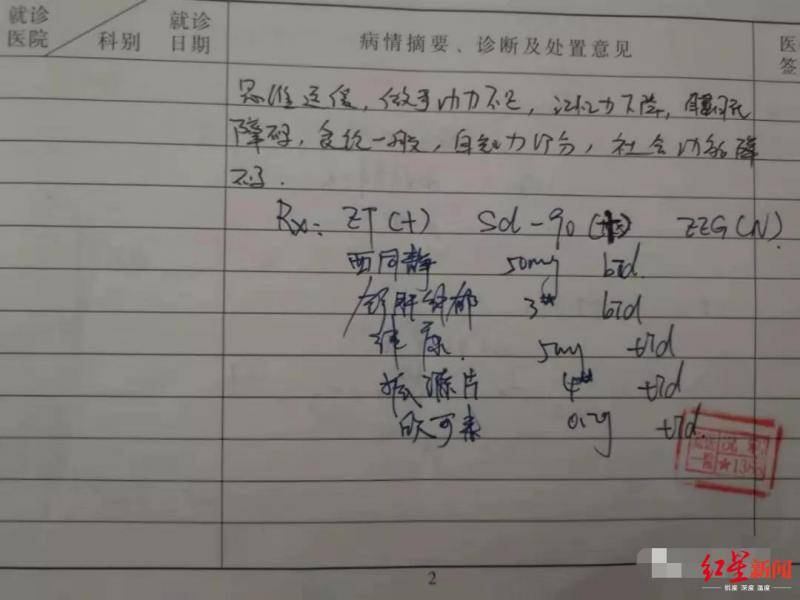 就诊医院
科别
就诊日期
病情摘要、诊断及处置意见
医
签
思维迟缓，做事动力不足，记忆力下降，睡眠
障碍，食纳一般，自知力部分，社会功能降
Rx: ZT(+) Scl-90 ZZG(N)
西同静 50mg bid
舒肝解郁 3# bid
5mg tid
片 4# tid
欧可来 0.2g tid
2
红星新闻
锐度 深度 温度